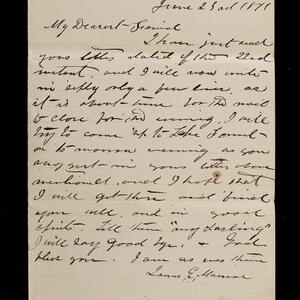 June 23rd 1871
My Dearest Friend
I have just read
your letter dated of the 22nd
instant, and I will now write
in reply only a few lines, as
it is about time for the mail
to close for this evening. I will
try to come up to
to morrow evening as you
suggest in your letter above
mentioned, and I hope that
I will get there and find
you well, and in good
Spirits. Till then "my darling"
I will say Good bye, & God
bless you. I am as ever thine
James E.